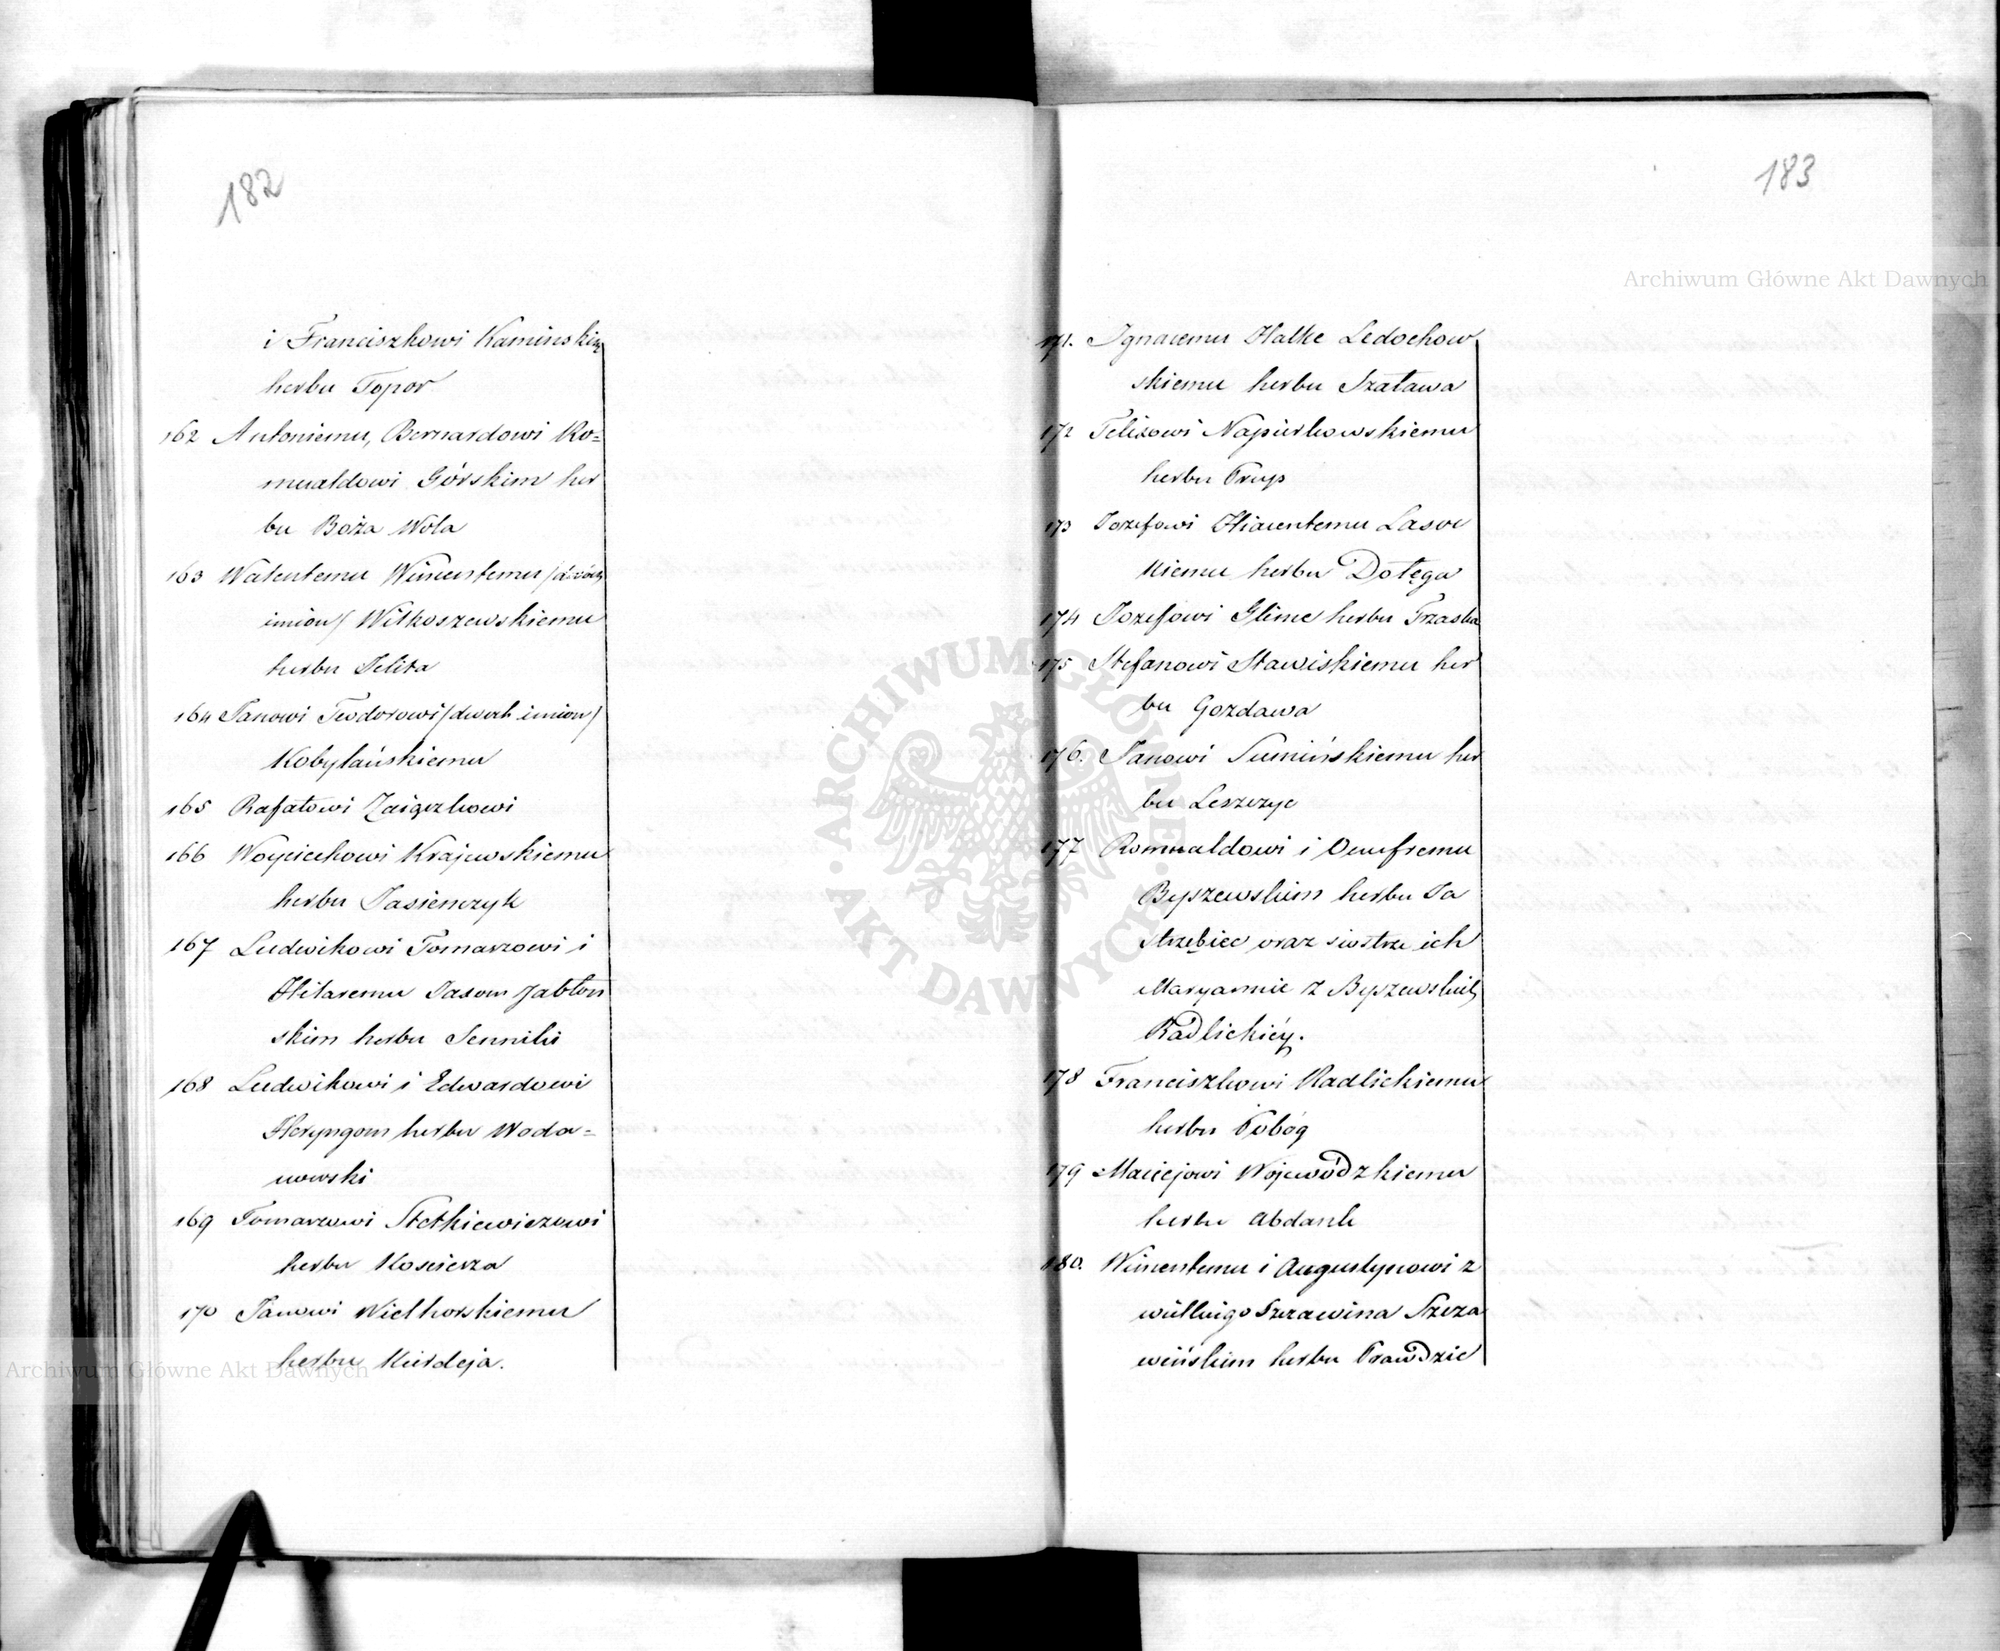 182
i Franciszkowi Kaminskim
herbu Topor
162 Antoniemu, Bernardowi Ro=
mualdowi Górskim her
bu Boża Wola
163 Walentemu Wincentemu /dwóch
imion/ Witkoszewskiemu
herbu Jelita
164 Janowi Teodorowi /dwoch imion/
Kobylańskiemu
165 Rafałowi Zaiączkowi
166 Woyciechowi Krajewskiemu
herbu Jasienczyk
167 Ludwikowi Tomaszowi i
Hilaremu Jasom Jabłon
skim herbu
168 Ludwikowi i Edwardowi
Heryngom herbu Woda=
nowski
169 Tomaszowi Stetkiewiczowi
herbu Koscierza
170 Janowi Wielhorskiemu
herbu Kierdeja.
183
171. Ignacemu Halke Ledochow
skiemu herbu Szaława
172 Felixowi Napiurkowskiemu
herbu Trup
173 Jozefowi Hiacentemu Lasoc
kiemu herbu Dołęga
174 Jozefowi Glince herbu Trzaska
175 Stefanowi Stawiskiemu her
bu Gozdawa
176. Janowi Sumińskiemu her
bu Leszczyc
177 Romualdowi i Onufremu
Byszewskim herbu Ja
strzębiec oraz siostrze ich
Maryannie z Byszewskich
Radlickiéy.
178 Franciszkowi Radlickiemu
herbu Pobóg
179 Maciejowi Wojewódzkiemu
herbu Abdank
180. Wincentemu i Augustynowi z
wielkiego Szczawina Szcza
wińskim herbu Prawdzic
Archiwum Główne Akt Dawnych
Archiwum Główne Akt Dawnych
ARCHIWUM GŁÓWNE · AKT DAWNYCH ·